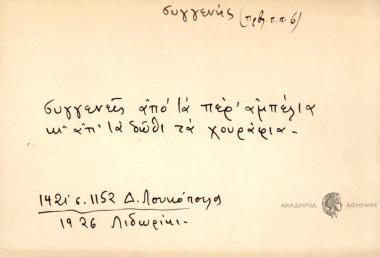 συγγενής (πρβλ. π.π. 6)
συγγενής ἀπὸ τὰ πέρ' ἀμπέλια
κι' ἀπ' τὰ δῶθι τὰ χουράφια.
1421 σ. 1152 Δ. Λουκόπουλος
1926 Λιδωρίκι.
ΑΚΑΔΗΜΙΑ ΑΘΗΝΩΝ